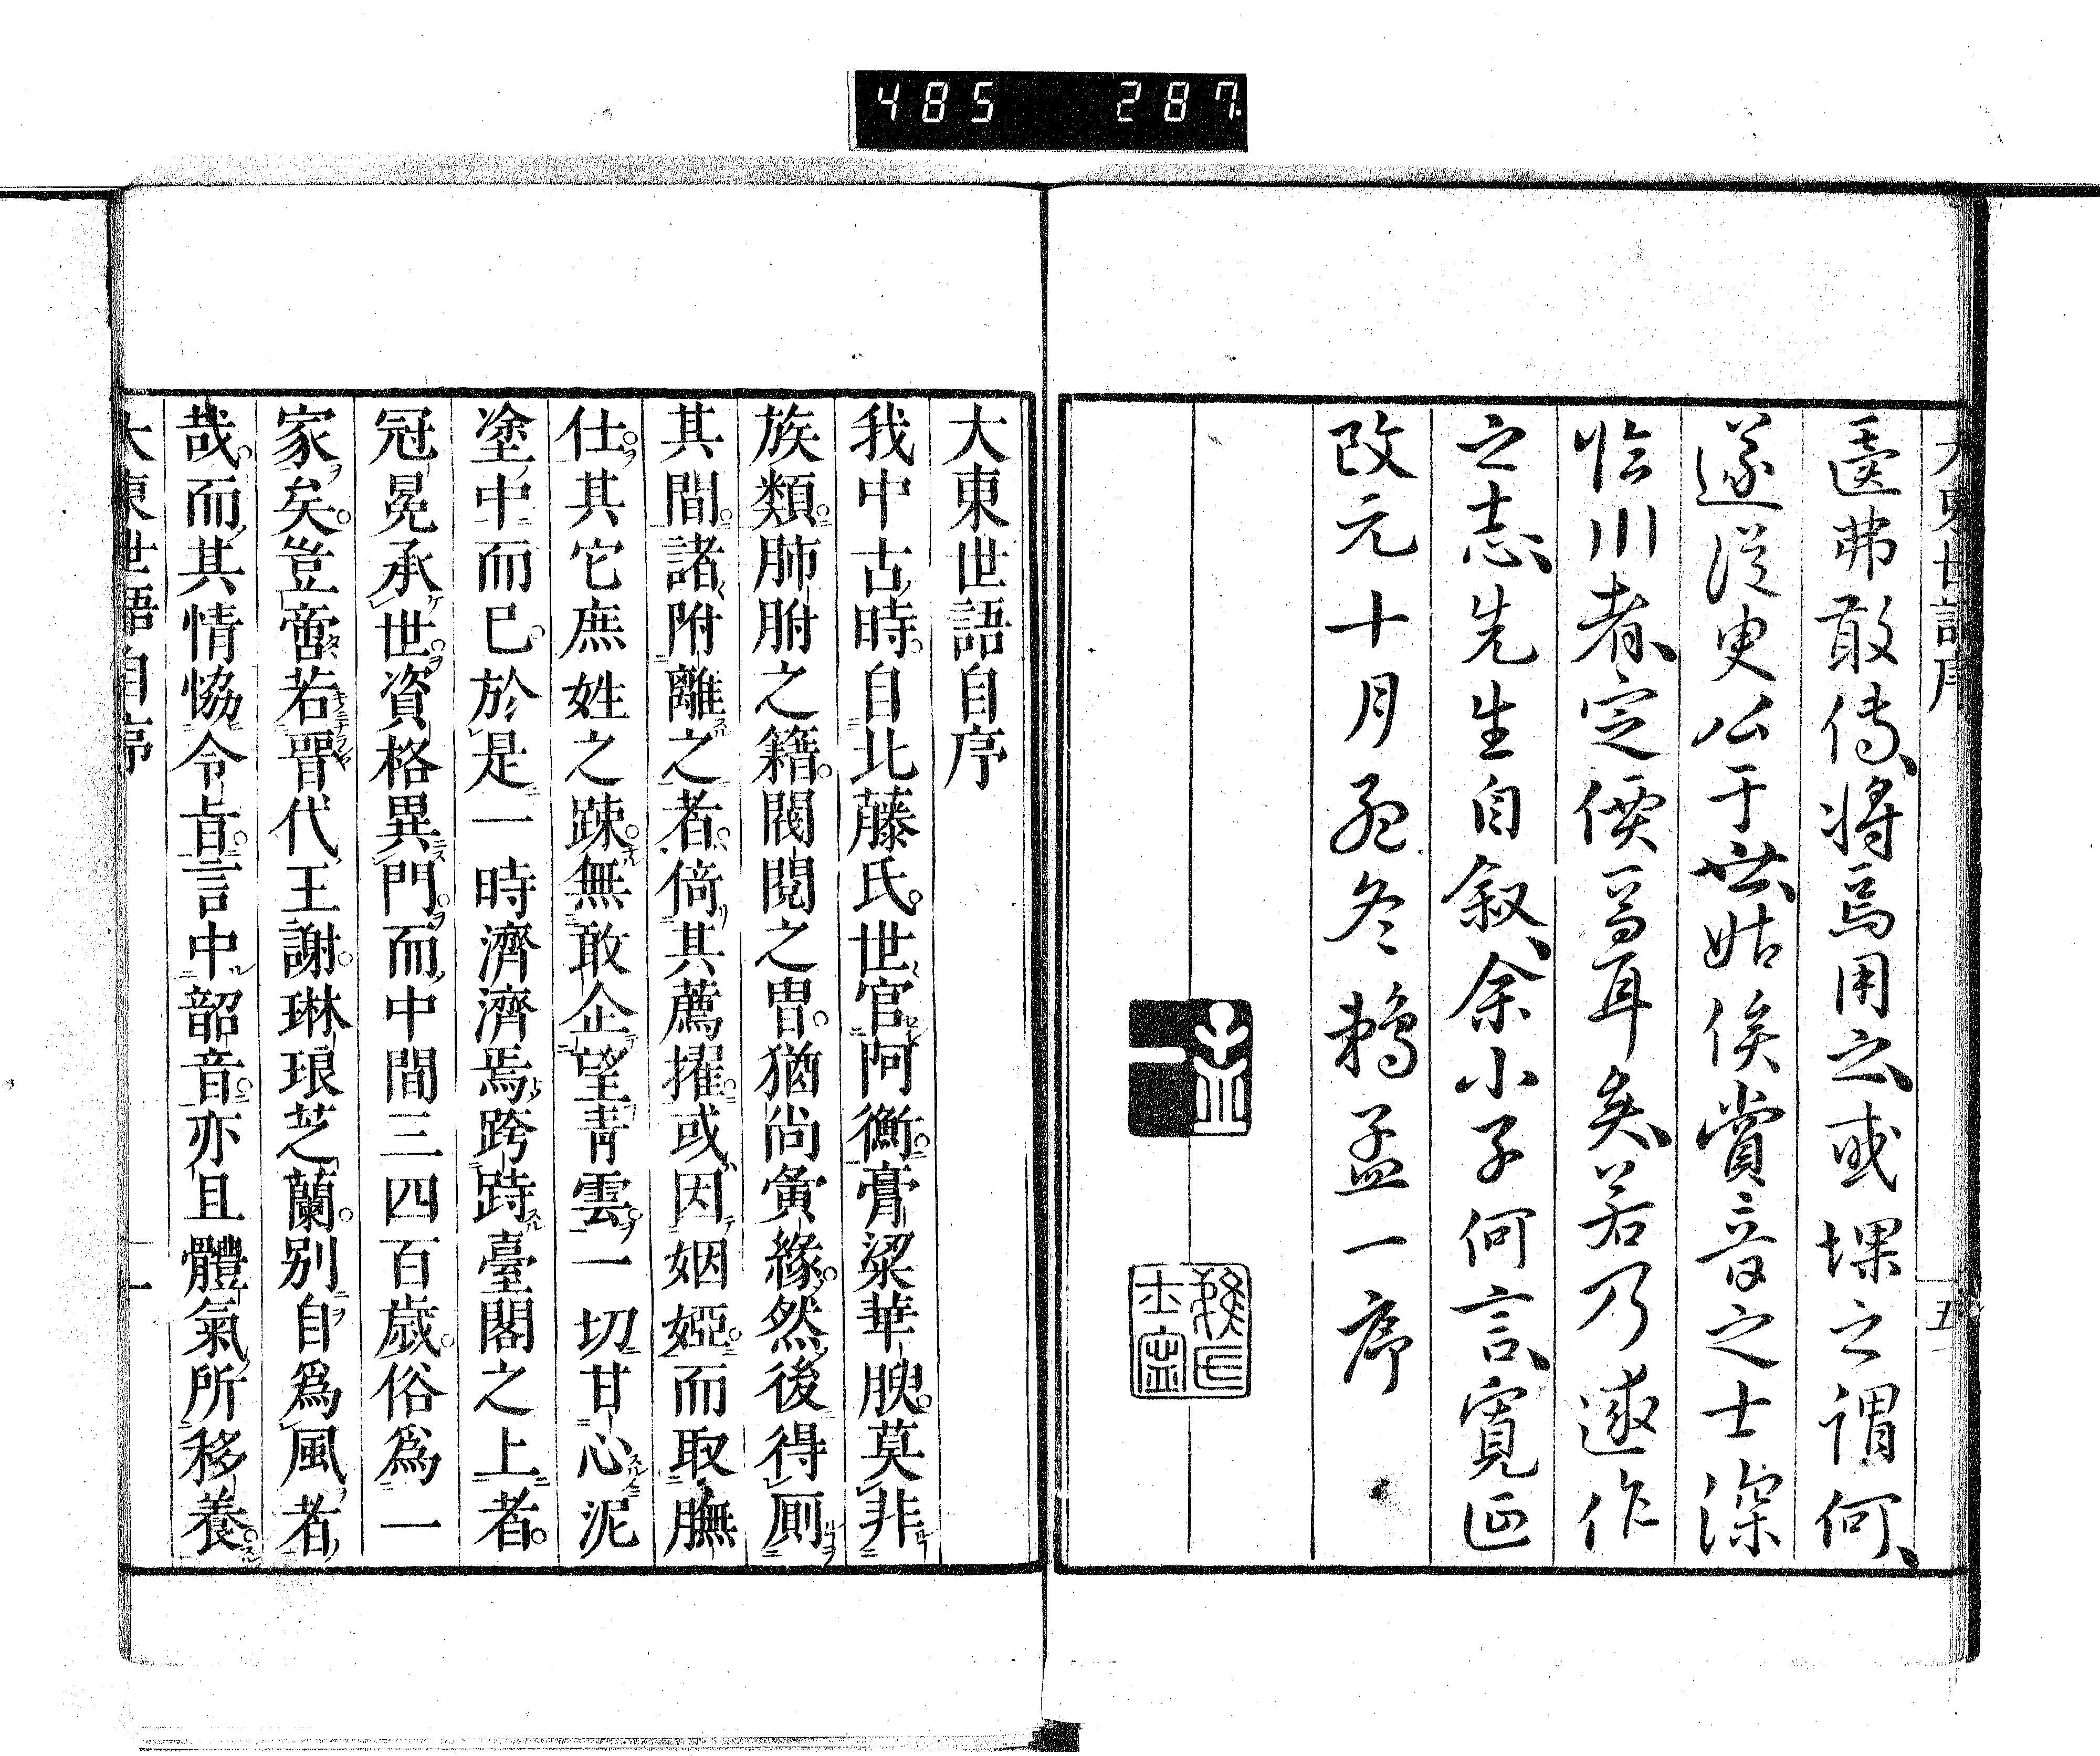 485 287
大東世語序
五
匱弗敢傳、將焉用之、或堁之謂何、
遂從臾公于世、姑俟賞音之士深
恰川者、定價焉耳矣、若乃遂作
之志、先生自叙、余小子何言、寬延
改元十月孟冬鵜孟一序
大東世語自序
我中古時。自北藤氏。世官阿衡。膏粱華腴。莫非
族類。肺胕之籍。閥閲之冑。猶尚夤緣。然後得厠
其間。諸附離之者。倚其薦擢。或因姻婭。而取膴
仕。其它庶姓之踈。無敢企望青雲。一切甘心泥
塗中而已。於是一時濟濟焉。跨跱臺閣之上者。
冠冕承世。資格異門。而中間三四百歳。俗爲一
家矣。豈啻若晉代王謝。琳琅芝蘭。別自爲風者
哉。而其情恊令旨。言中韶音。亦且體氣所移養。
大東世語自序
一